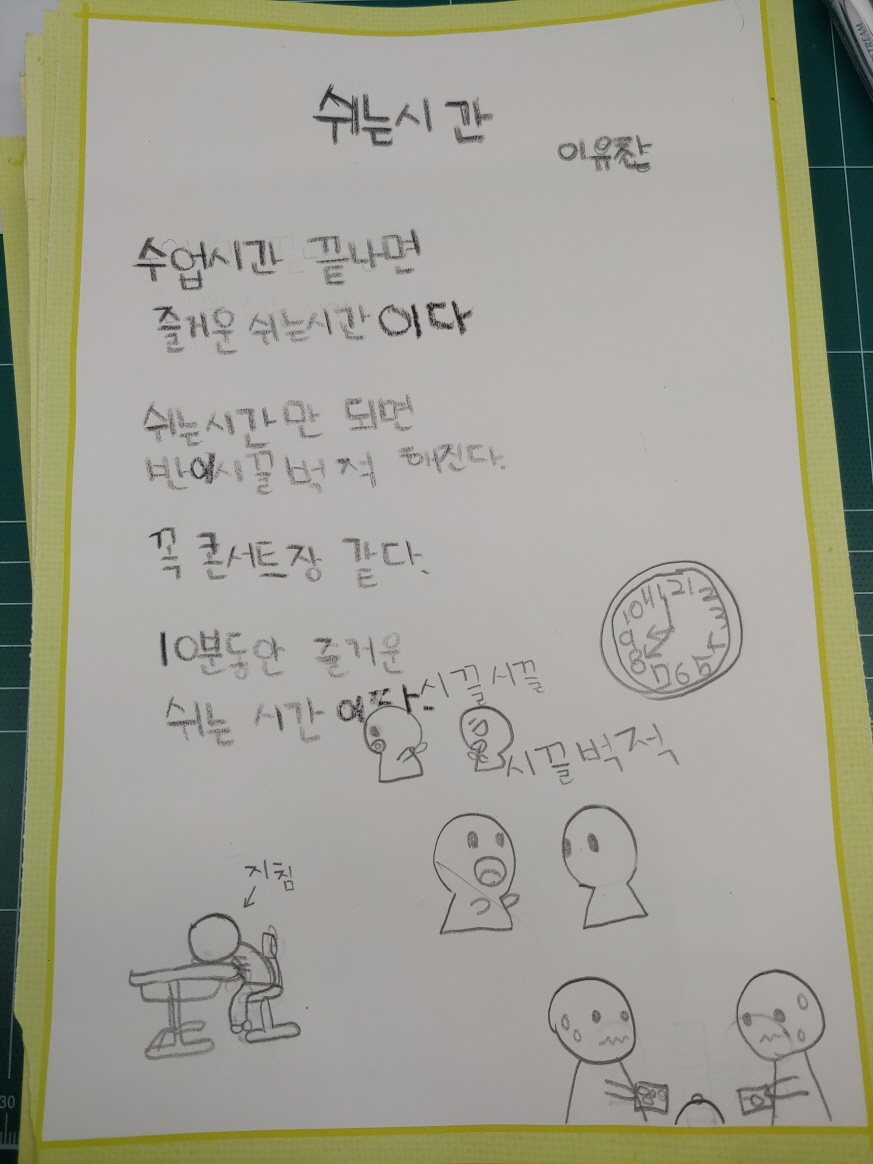 쉬는시간
이유찬
수업시간 끝나면
즐거운 쉬는시간이다
쉬는시간만 되면
반이시끌벅적 해진다.
꼭 콘서트장 같다.
10분동안 즐거운
쉬는 시간이다.
시끌시끌
시끌벅적
지침
10 11 12 1 2 3 4 5 6 7 8 9
30